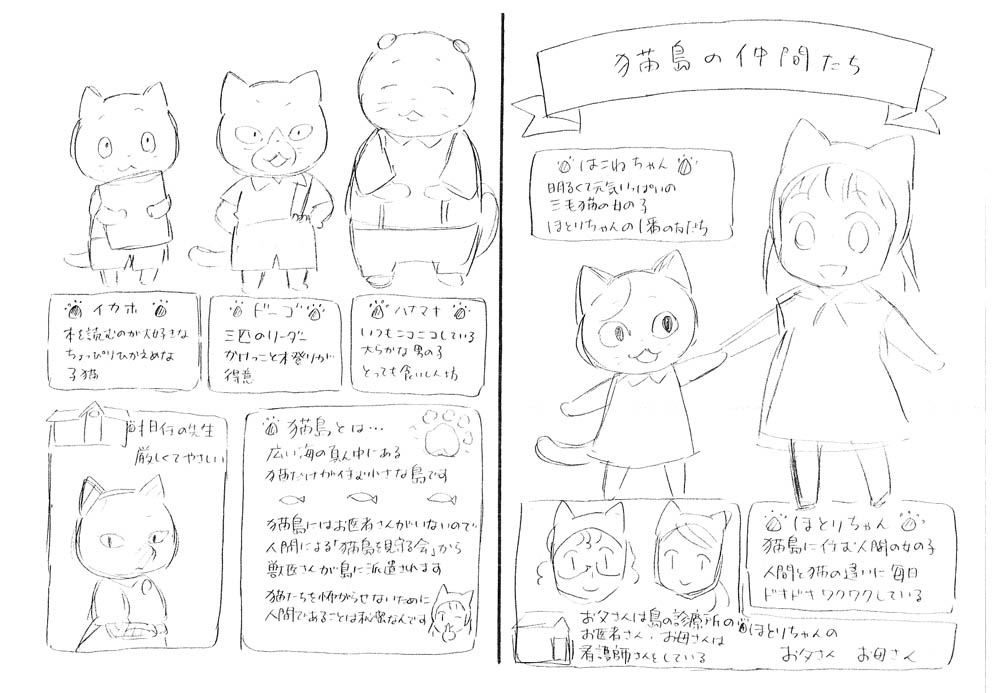 猫島の仲間たち
はこねちゃん
明るくて元気いっぱいの
三毛猫の女の子
ほとりちゃんの1番の友だち
ほとりちゃん
猫島に住む人間の女の子
人間と猫の違いに毎日
ドキドキワクワクしている
お父さんは島の診療所の
お医者さん・お母さんは
看護師さんをしている
ほとりちゃんの
お父さん お母さん
イカホ
本を読むのが大好きな
ちょっぴりひかえめな
子猫
ドーゴ
三匹のリーダー
かけっこと木登りが
得意
ハナマキ
いつもニコニコしている
大らかな男の子
とっても食いしん坊
の先生
厳しくてやさしい
猫島とは…
広い海の真ん中にある
猫だけが住む小さな島です
猫島にはお医者さんがいないので
人間による「猫島を見守る会」から
獣医さんが島に派遣されます
猫たちを怖がらせないために
人間であることは秘密なんです